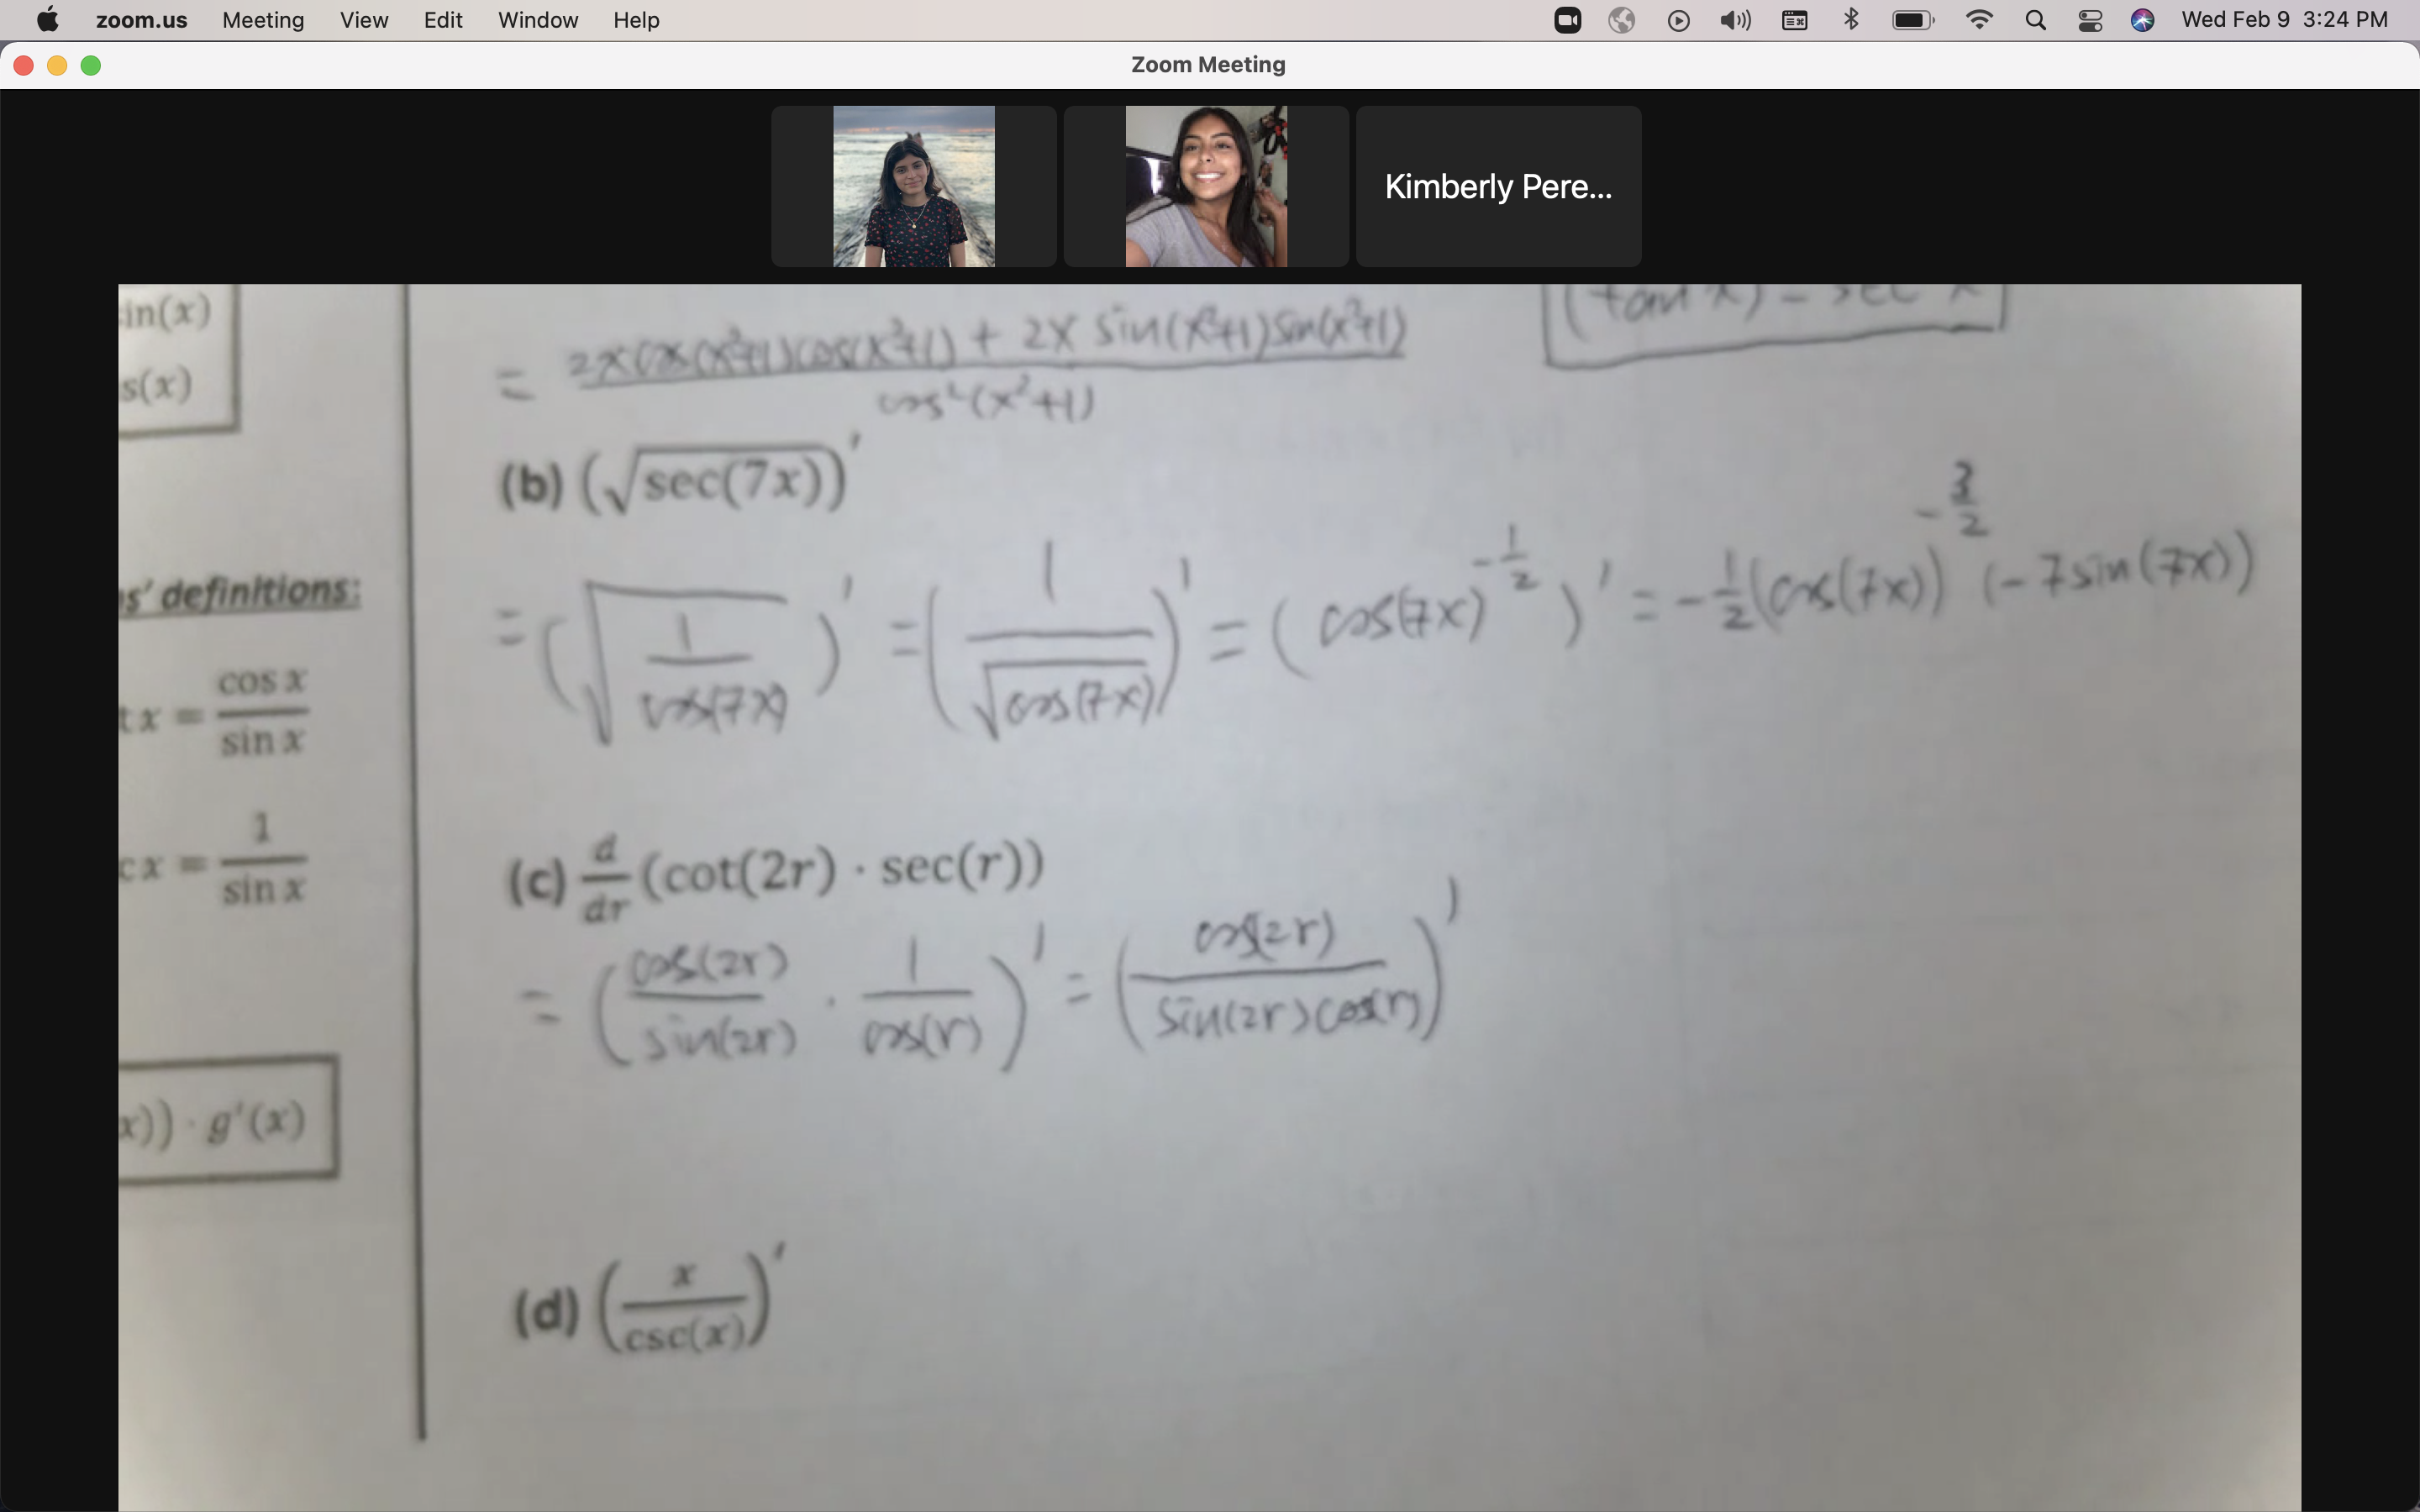 zoom.us Meeting View Edit Window Help Wed Feb 9 3:24 PM
Zoom Meeting
Kimberly Pere...
in(x)
s(x)
s' definitions:
tx = cos x / sin x
cx = 1 / sin x
x)) · g'(x)
(tan x) = sec x
= 2x cos(x²+1)cos(x²+1) + 2x sin(x²+1)sin(x²+1) / cos²(x²+1)
(b) (√sec(7x))'
= (√(1/cos(7x)))' = (1/√cos(7x))' = (cos(7x)^(-1/2))' = -1/2(cos(7x))^(-3/2) (-7sin(7x))
(c) d/dr (cot(2r) · sec(r))
= (cos(2r)/sin(2r) · 1/cos(r))' = (cos(2r)/sin(2r)cos(r))'
(d) (x/csc(x))'